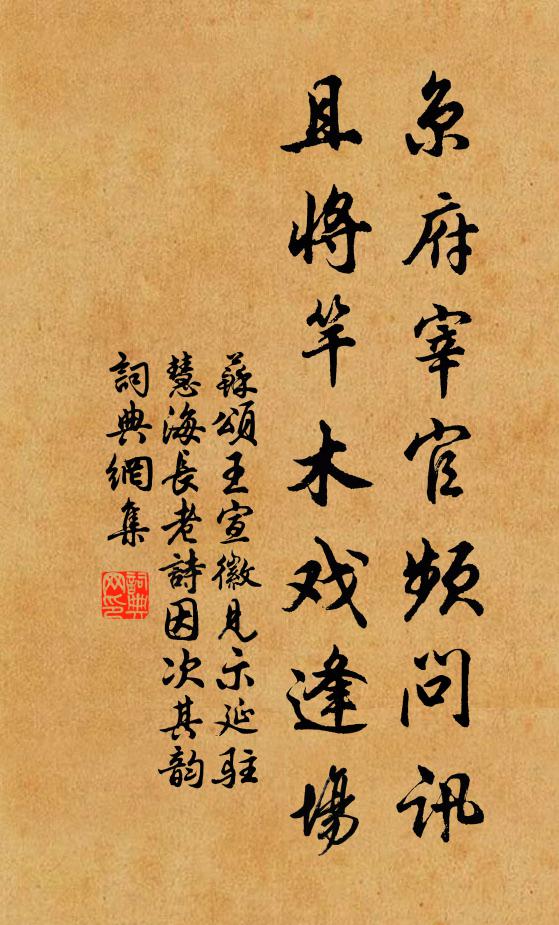 京府宰官頻問訊
且將竿木戏逢場
蘇頌王宣徽見示延駐
慧海長老詩因次其韵
詞典網集
詞典网印